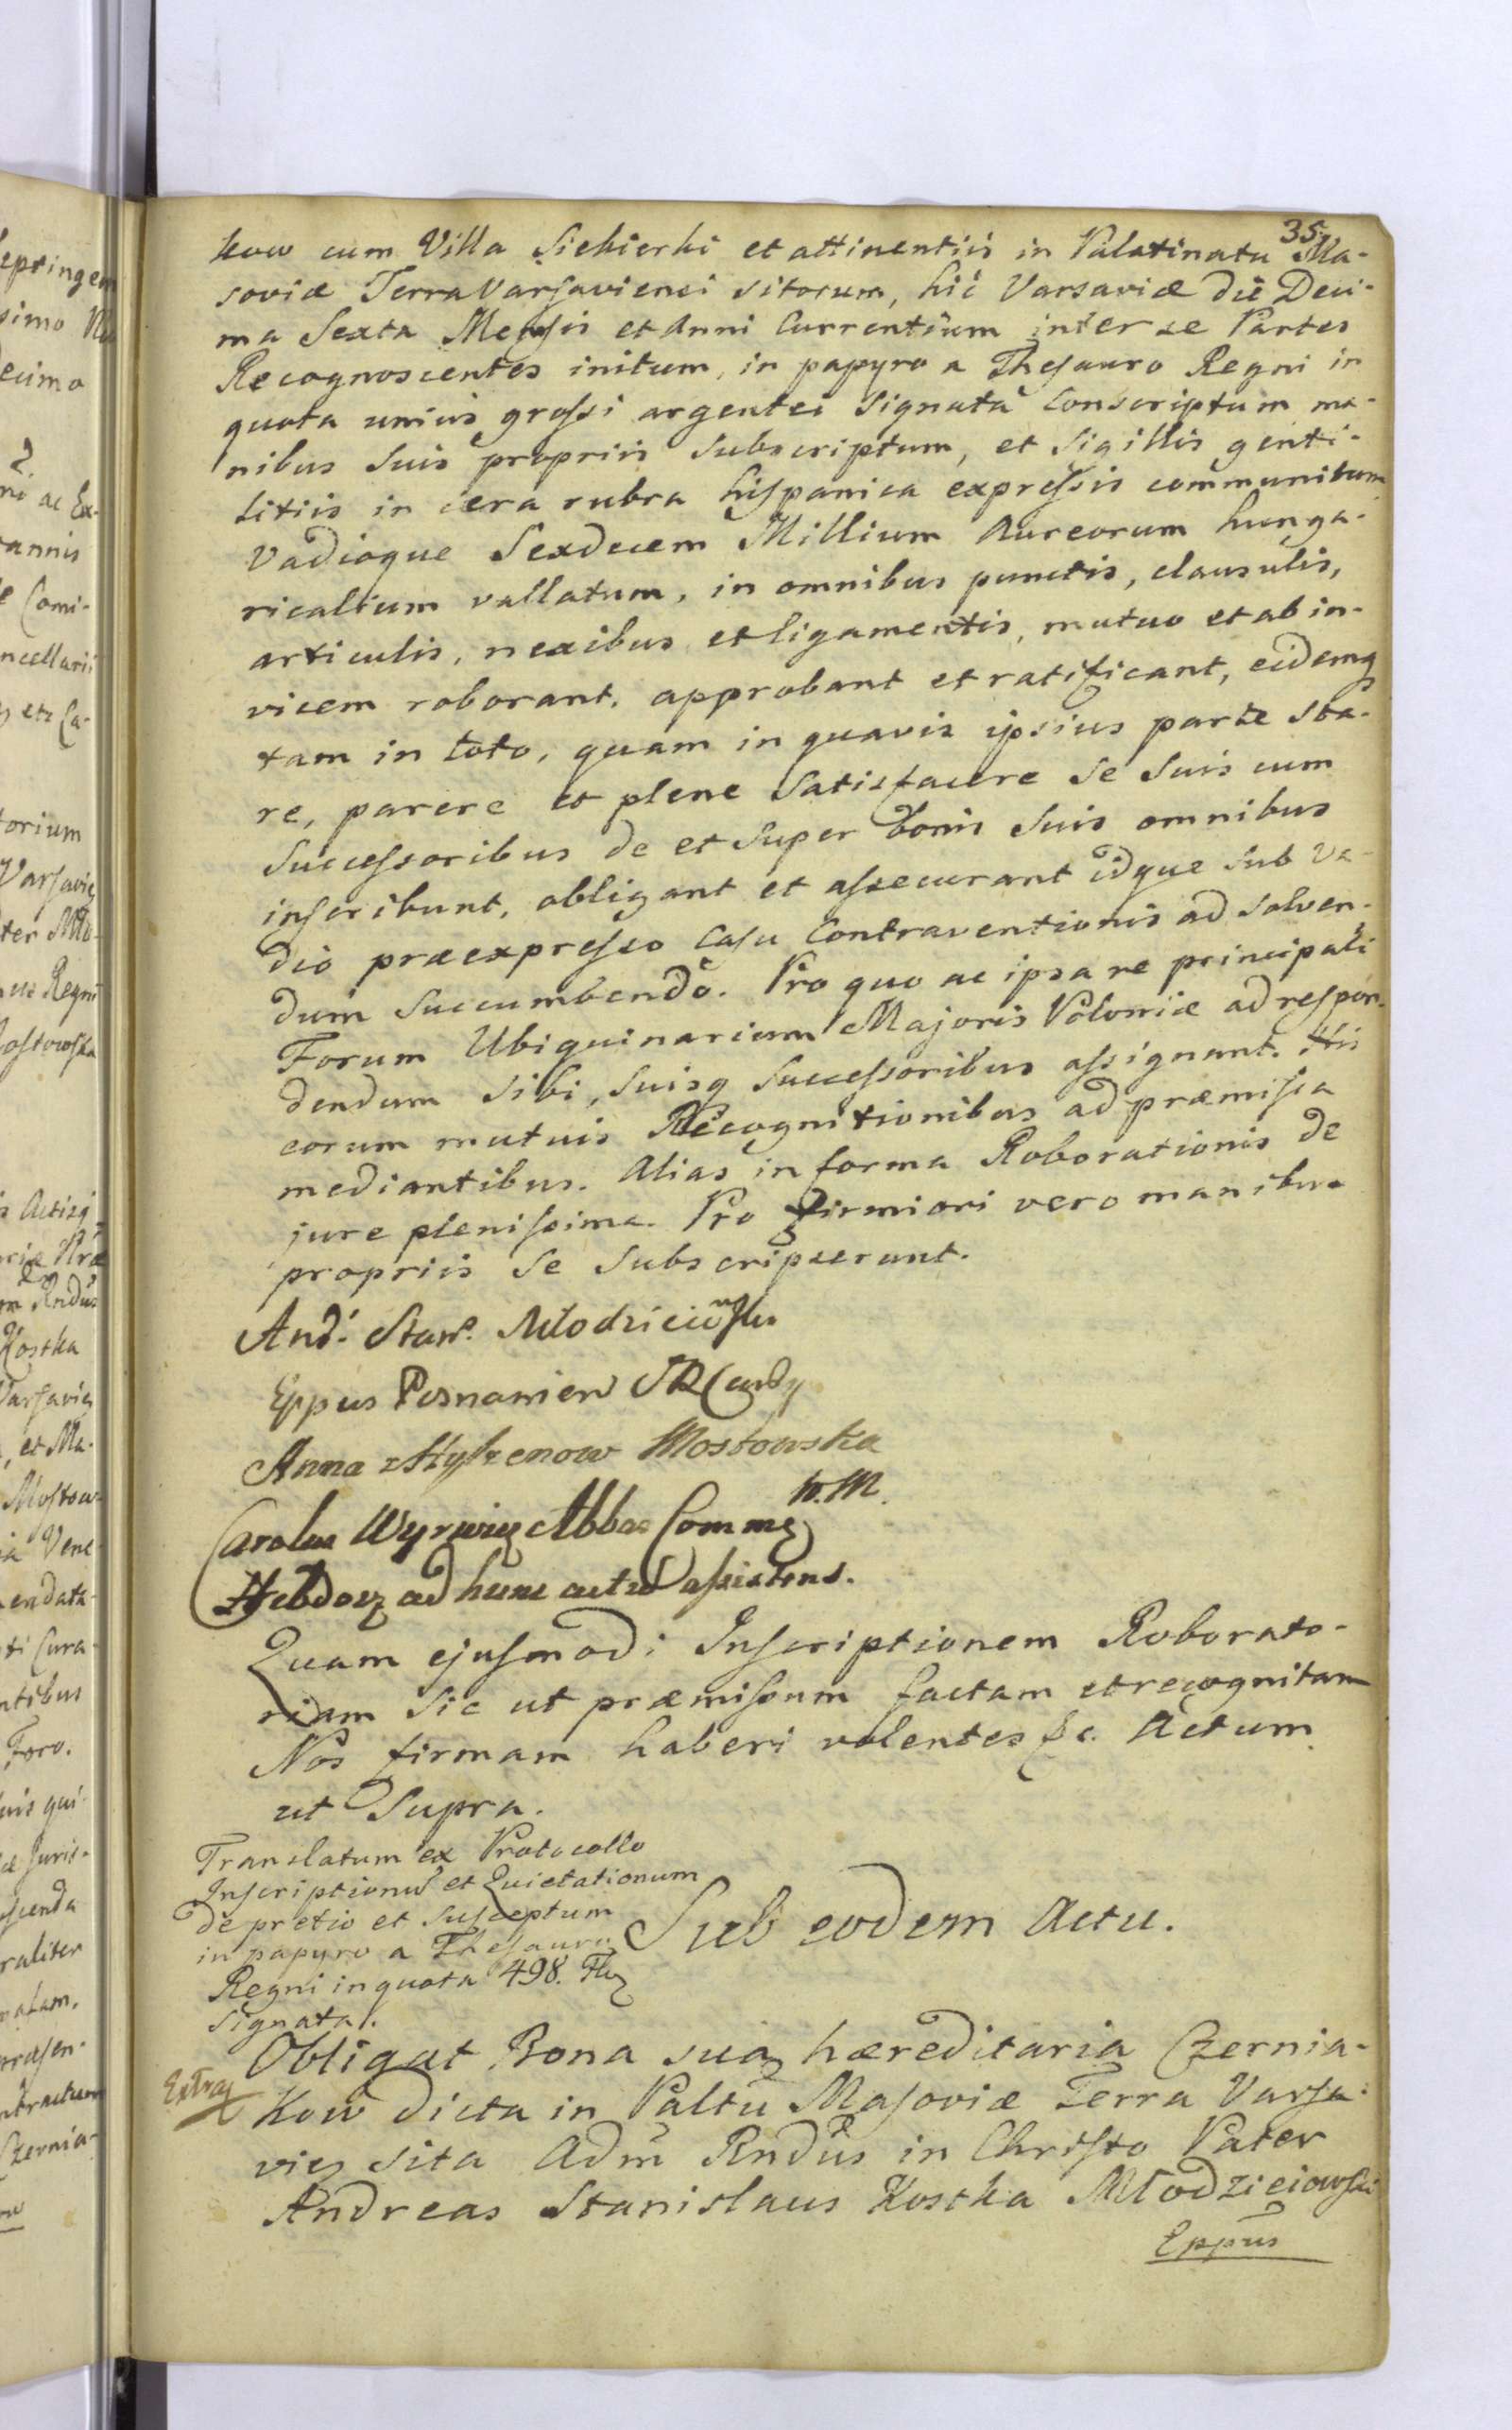 35.
kow cum Villa Siekierki et attinentiis in Palatinatu Ma-
soviæ Terra Varsaviensi sitorum, hic Varsaviæ die Deci-
ma Sexta Mensis et Anni Currentium inter se Partes
Recognoscentes initum, in papyro a Thesauro Regni in
quota unius grossi argentei signata Conscriptum ma-
nibus suis propriis subscriptum, et sigillis genti-
litiis in cera rubra hispanica expressis communitum
Vadioque Sexdecem Millium Aureorum hunga-
ricalium vallatum, in omnibus punctis, clausulis,
articulis, nexibus et ligamentis, mutuo et ab in-
vicem roborant, approbant et ratificant, eidemq
tam in toto, quam in quavis ipsius parte sta-
re, parere et plene satisfacere se suis cum
Successoribus de et super bonis suis omnibus
inscribunt, obligant et assecurant idque sub va-
dio præexpresso casu Contraventionis ad solven-
dum succumbendo. Pro quo ac ipsa re principali
Forum Ubiquinarium Majoris Poloniæ ad respon-
dendum sibi, suisq successoribus assignant. His
eorum mutuis Recognitionibus ad præmissa
mediantibus. Alias in forma Roborationis de
jure plenissima. Pro firmiori vero manibus
propriis se subscripserunt.
And. Stan. Młodzieiowski
Eppus Posnanien SR Can
Anna Mostowska
W. M.
Carolus Wyrwicz Abbas Comm
Hebdow ad hunc actum assistens.
Quam ejusmodi Inscriptionem Roborato-
riam sic ut præmissum factam et recognitam
Nos firmam haberi volentes &c. Actum
ut Supra.
Translatum ex Protocollo
Inscriptionum et Quietationum
de pretio et susceptum
in papyro a Thesauro
Regni in quota 498. Fl
signata.
Sub eodem Actu.
Extra
Obligat Bona sua hæreditaria Czernia-
kow dicta in Paltu Masoviæ Terra Varsa-
vien sita Adm Rndus in Christo Pater
Andreas Stanislaus Kostka Młodzieiowski
Eppus